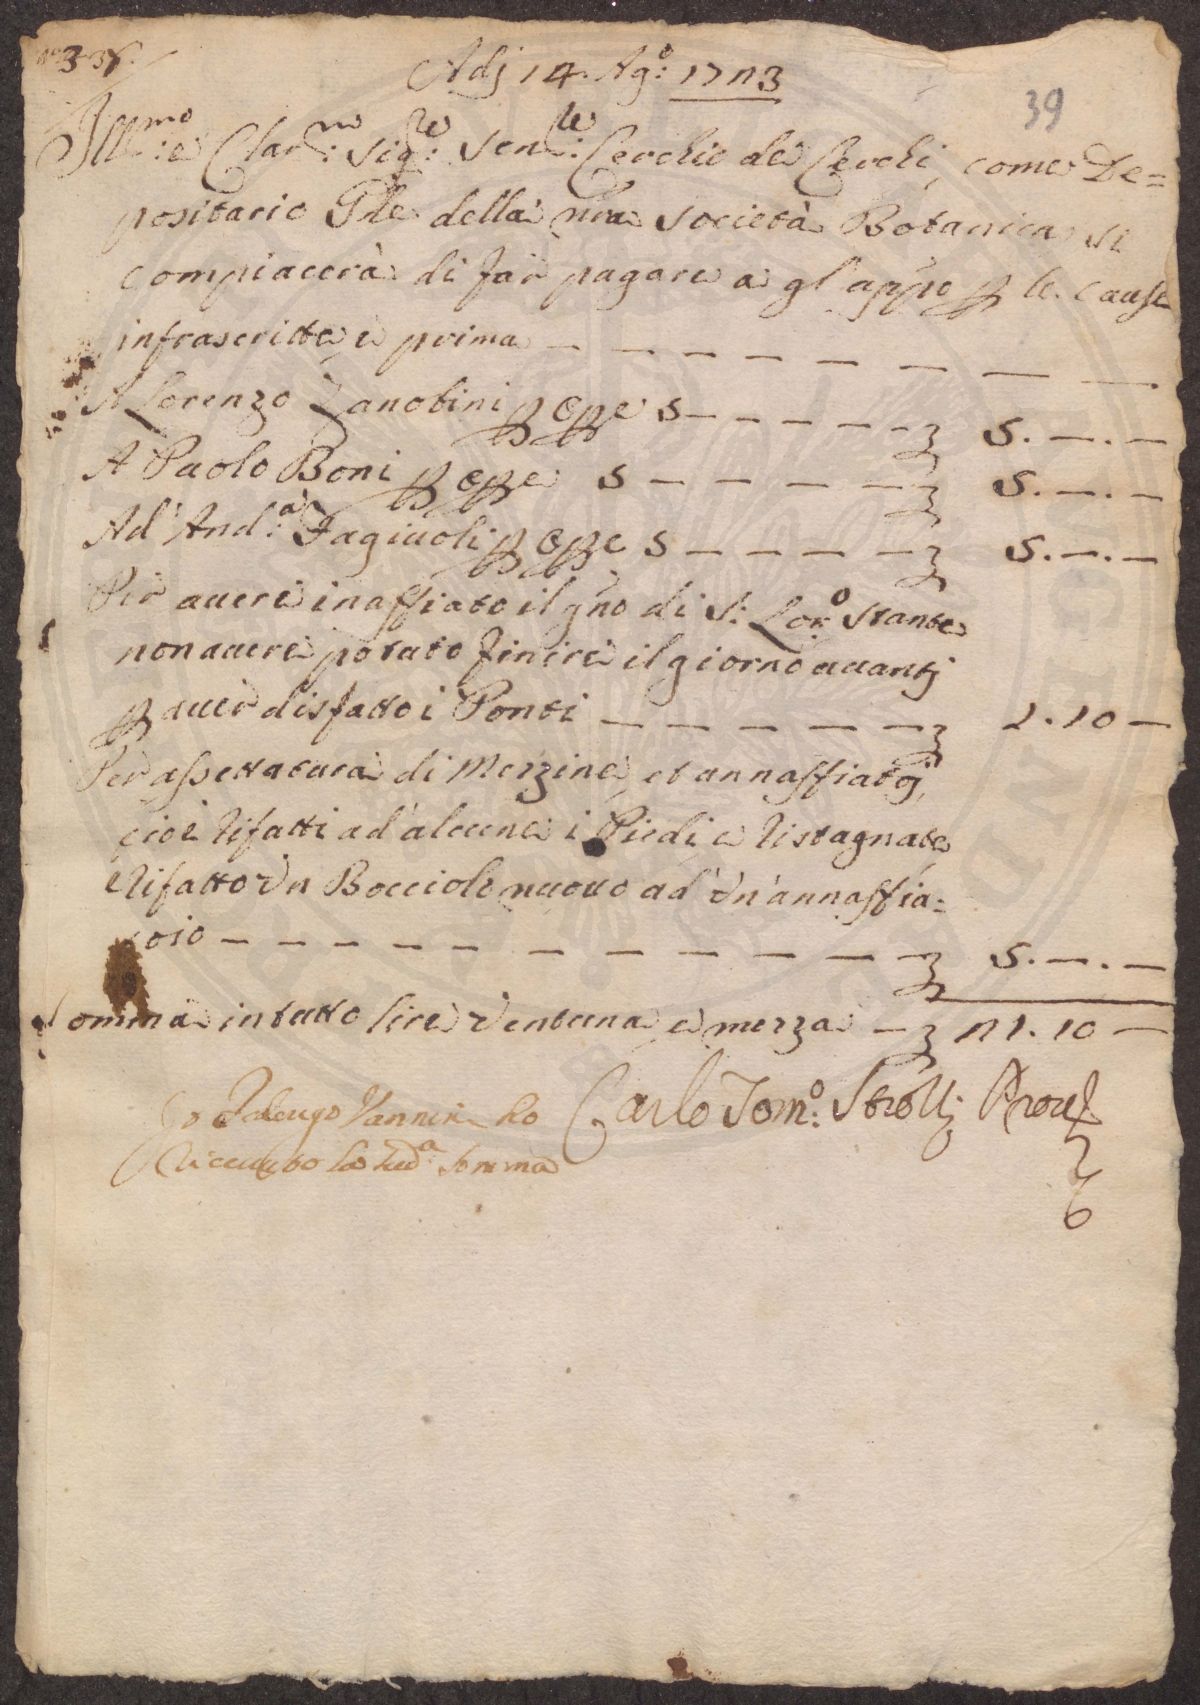 No 3
39
Adj 14. Ag:o 1723
Ill:mo e Clar:mo Sig:re Sen:re Cerchio de Cerchi, come De=
positario Gle della nra Società Botanica si
compiacerà di far pagare a gl'appo p le cause
infrascritte e prima — — — — — — — —
A Lorenzo Zanobini p opre 5 — — — — — 5. —. —
A Paolo Boni p opre 5 — — — — — 5. —. —
Ad And:a Fagiuoli p opre 5 — — — — 5. —. —
Per avere inaffiato il gno di S: Lor:o stante
non avere potuto finire il giorno avantj
p aver disfatto i Ponti — — — — — — 1. 10 —
Per assettatura di Mezzine, et annaffiatoj,
cioè rifatti ad alcune i Piedi, e ristagnate
e rifatto un Bocciolo nuovo ad un annaffia=
toio — — — — — — — — — — — 5. —. —
Somma in tutto lire ventuna e mezza — 21. 10 —
Carlo Tom:o Strozzj Provre
Io Vannini ho
riceuuto la sud:a somma